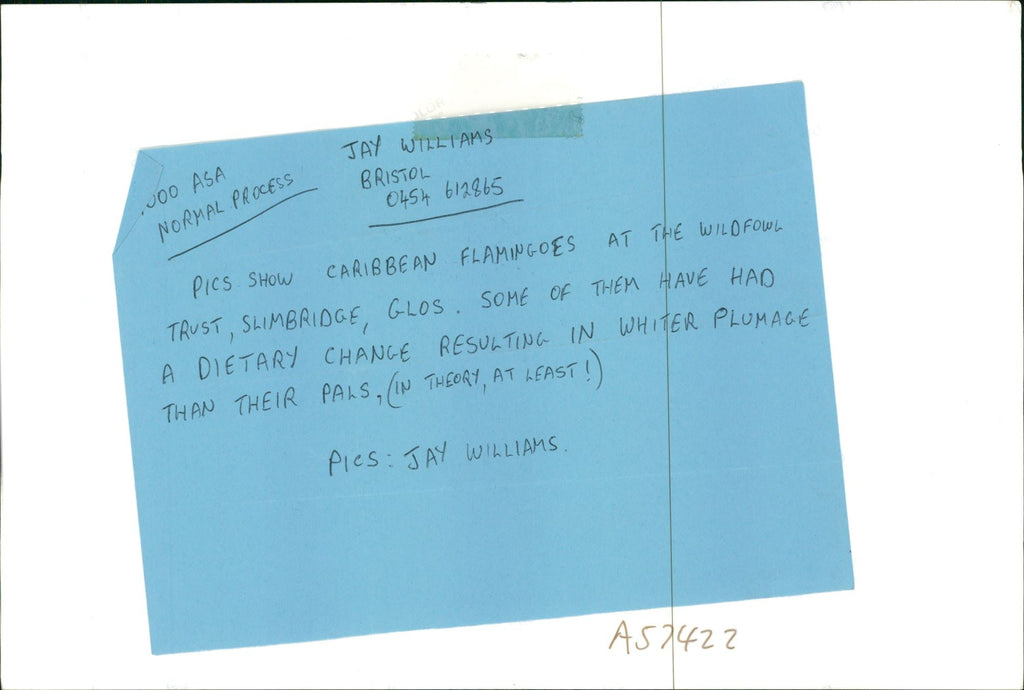 JAY WILLIAMS
BRISTOL
0454 612865
000 ASA
NORMAL PROCESS
PICS SHOW CARIBBEAN FLAMINGOES AT THE WILDFOWL
TRUST, SLIMBRIDGE, GLOS. SOME OF THEM HAVE HAD
A DIETARY CHANGE RESULTING IN WHITER PLUMAGE
THAN THEIR PALS, (IN THEORY, AT LEAST!)
PICS: JAY WILLIAMS.
A57422